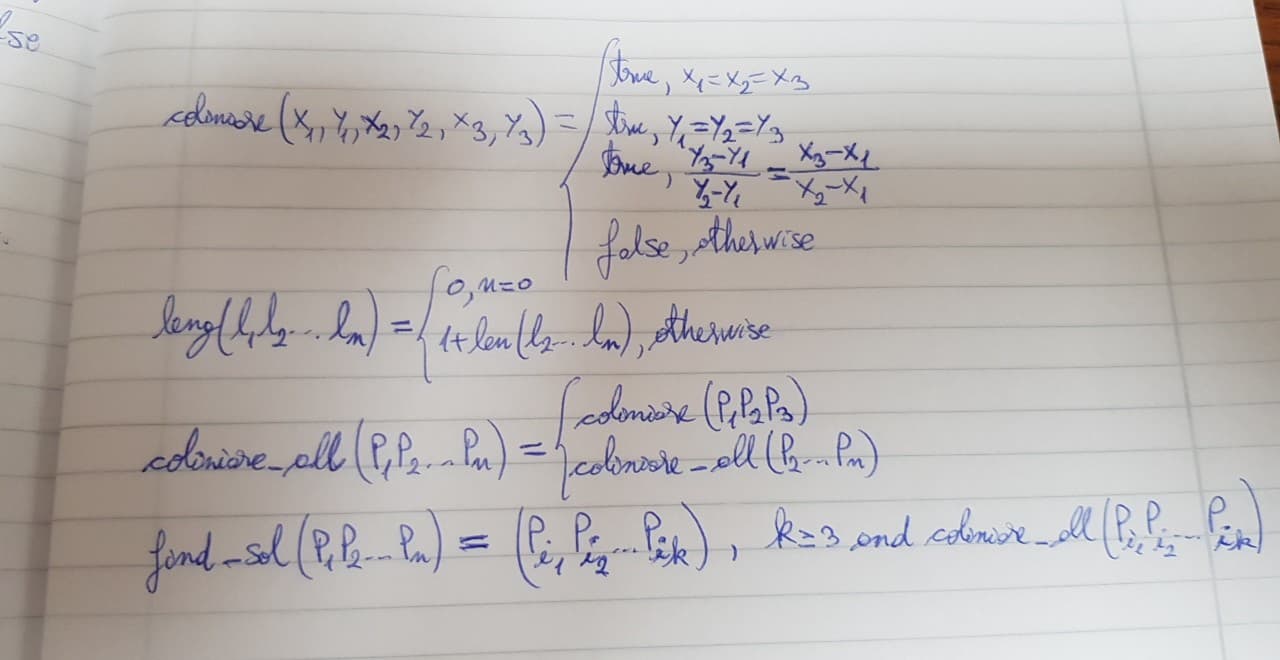 lse
coliniare (X₁, Y₁, X₂, Y₂, X₃, Y₃) = { true, X₁=X₂=X₃
true, Y₁=Y₂=Y₃
true, (Y₃-Y₁)/(Y₂-Y₁) = (X₃-X₁)/(X₂-X₁)
false, otherwise
leng(l₁l₂... lₙ) = { 0, n=0
1+len(l₂... lₙ), otherwise
coliniare_all(P₁P₂...Pₙ) = { coliniare (P₁P₂P₃)
coliniare_all(P₂...Pₙ)
find_sol(P₁P₂...Pₙ) = (Pᵢ₁ Pᵢ₂...Pᵢₖ), k≥3 and coliniare_all(Pᵢ₁ Pᵢ₂...Pᵢₖ)